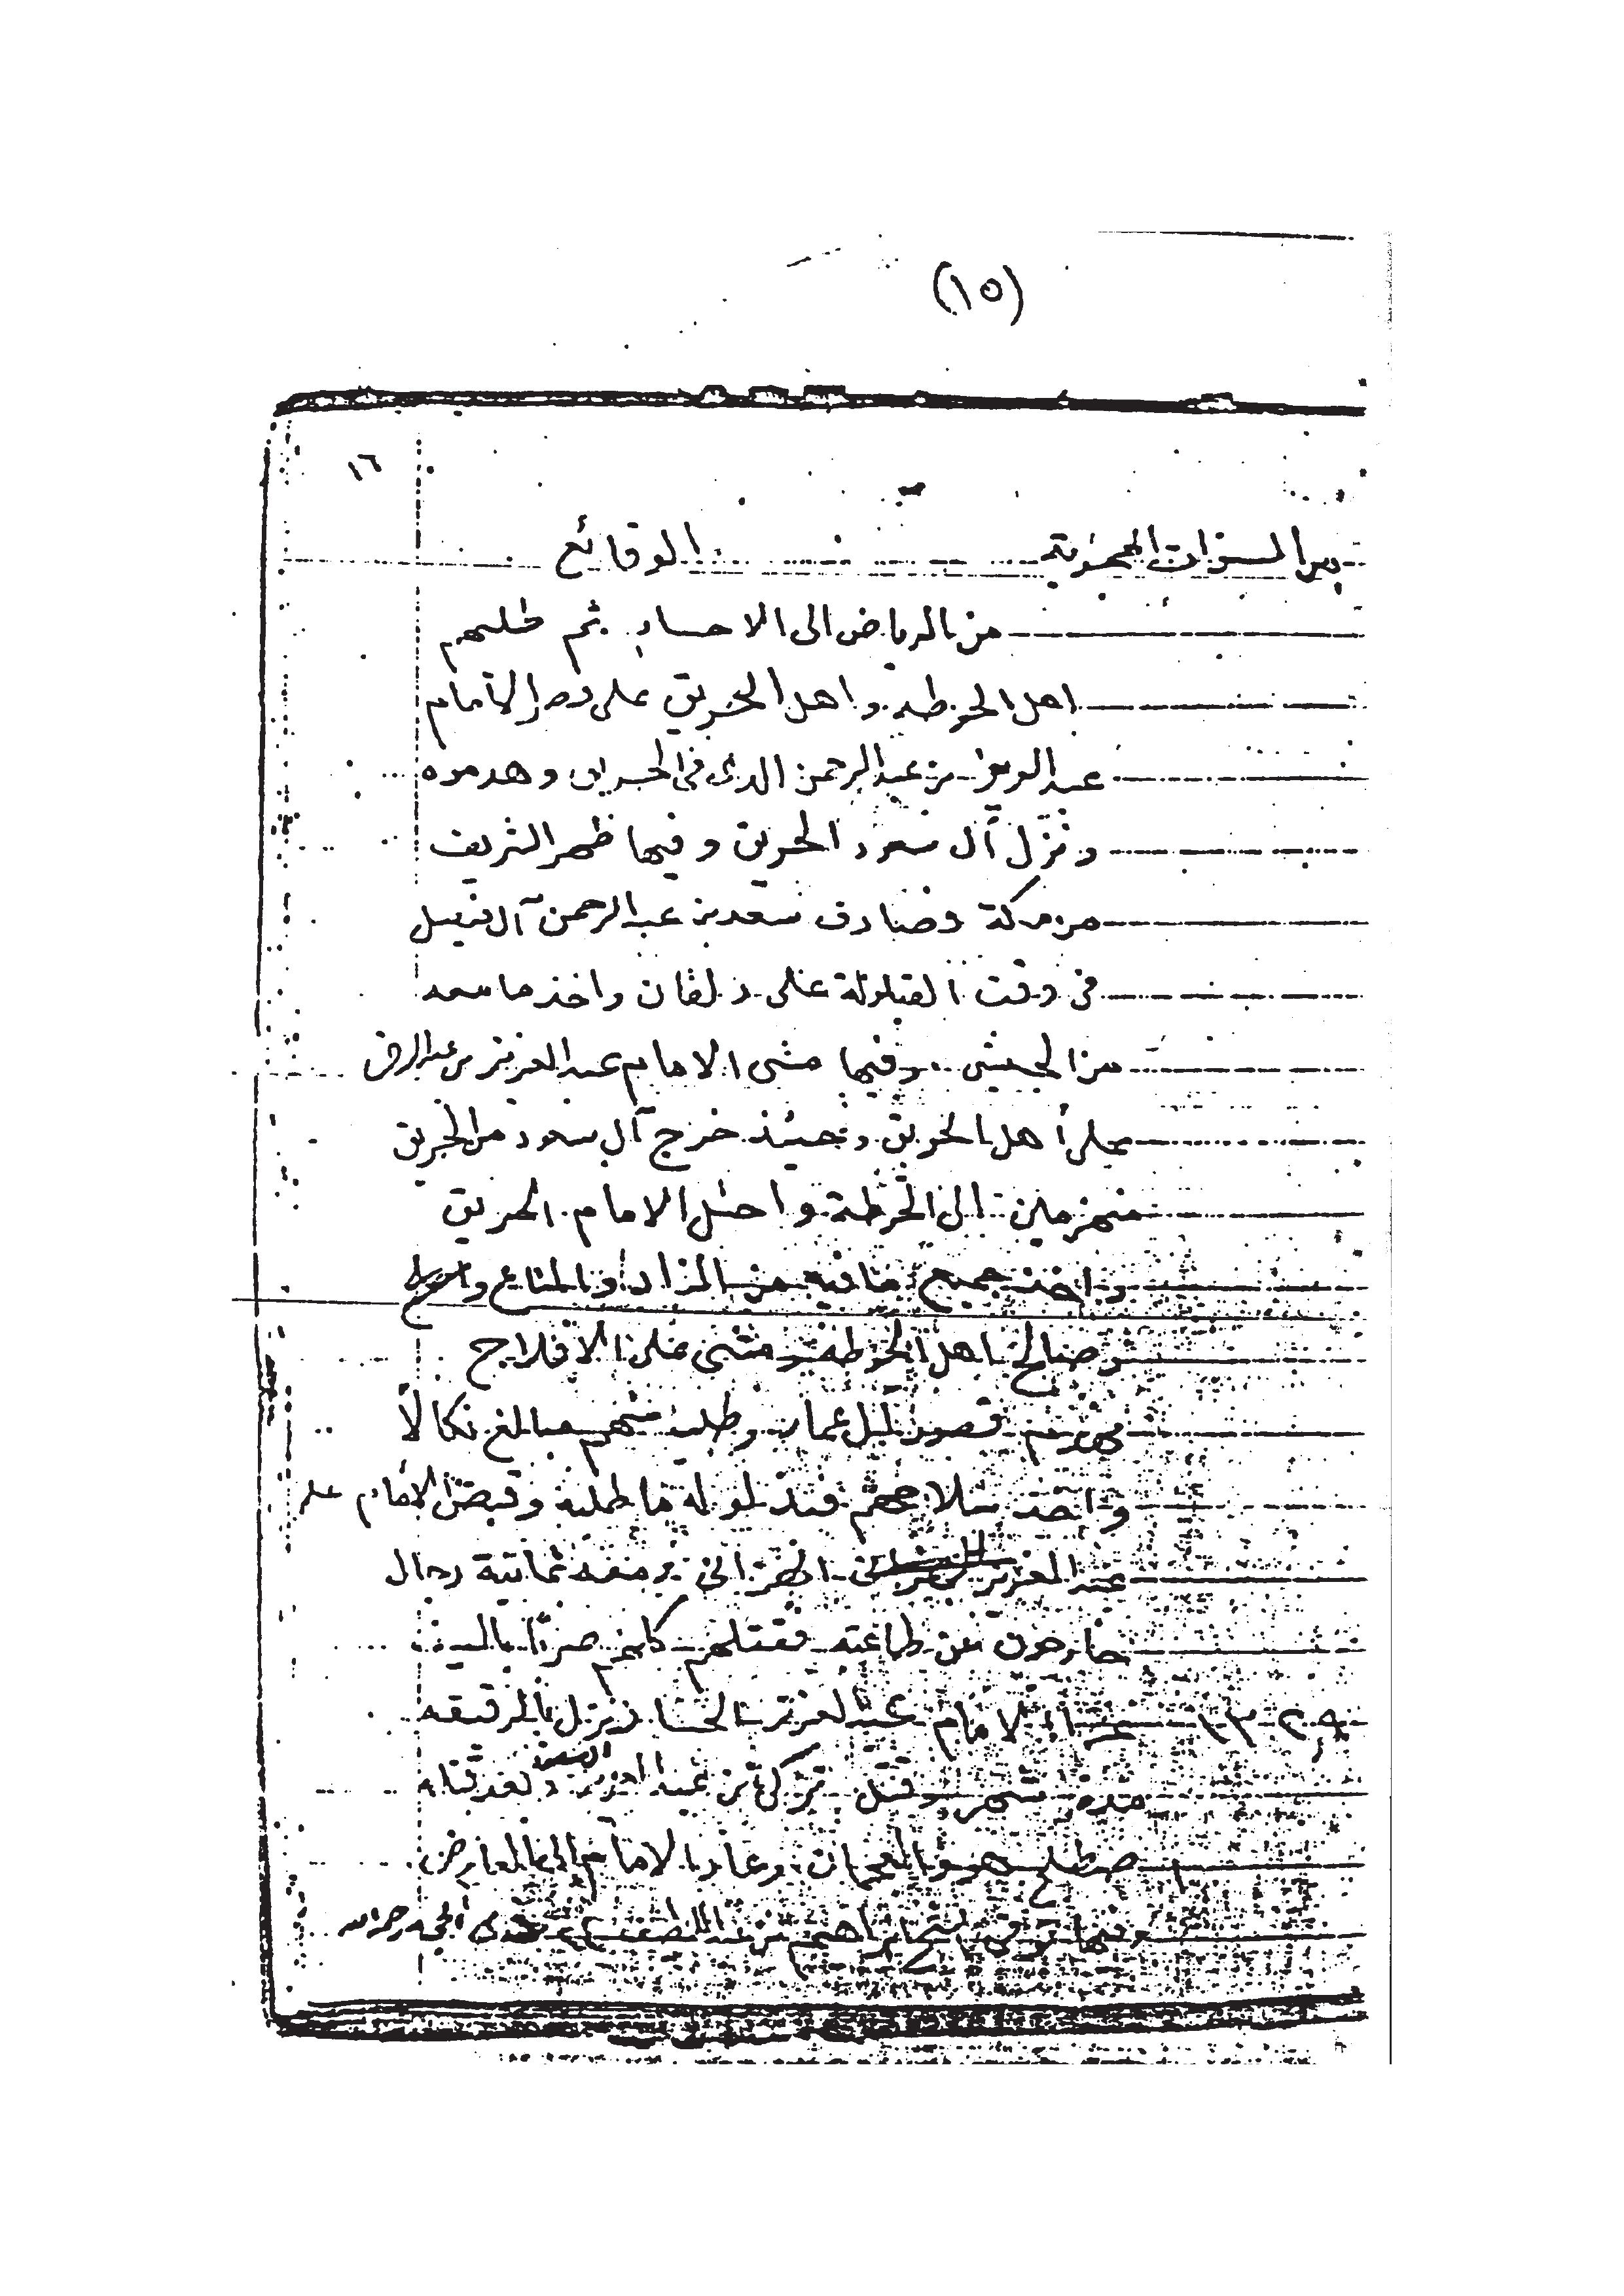 (١٥)
١٦
السنوات الهجرية الوقائع
من الرياض الى الاحساء ثم
اهل الحوطة واهل الحريق على قصر الامام
عبد العزيز بن عبد الرحمن الذي في الحريق وهدموه
ونزل آل سعود الحريق وفيها ظهر الشريف
من مكة وصادف سعد بن عبد الرحمن آل فيصل
في وقت القيلولة على ذلقان واخذ ما معه
من الجيش وفيها مشى الامام عبد العزيز بن عبد الرحمن
على أهل الحريق وحينئذ خرج آل سعود من الحريق
منهزمين الى الحوطة واحتل الامام الحريق
واخذ جميع ما فيه من الزاد والمتاع
وصالح اهل الحوطة ومشى على الافلاج
وهدم قصور ليلى عمار وطلب منهم مبالغ نكالاً
واخذ سلاحهم ما طلبه وقبض الامام على
عبد العزيز الهزاني ومعه ثمانية رجال
خارجون عن طاعته فقتلهم كلهم صبراً بالسيف
١٣٢٩ غزا الامام عبد العزيز الحسا ونزل بالرقيقه
مدة شهر وقتل تركي بن عبد العزيز وبعد قتله
اصطلح هو والعجمان وعاد الامام الى العارض
وفيها توفي الشيخ ابراهيم بن عبد اللطيف ذي الحجه رحمه الله